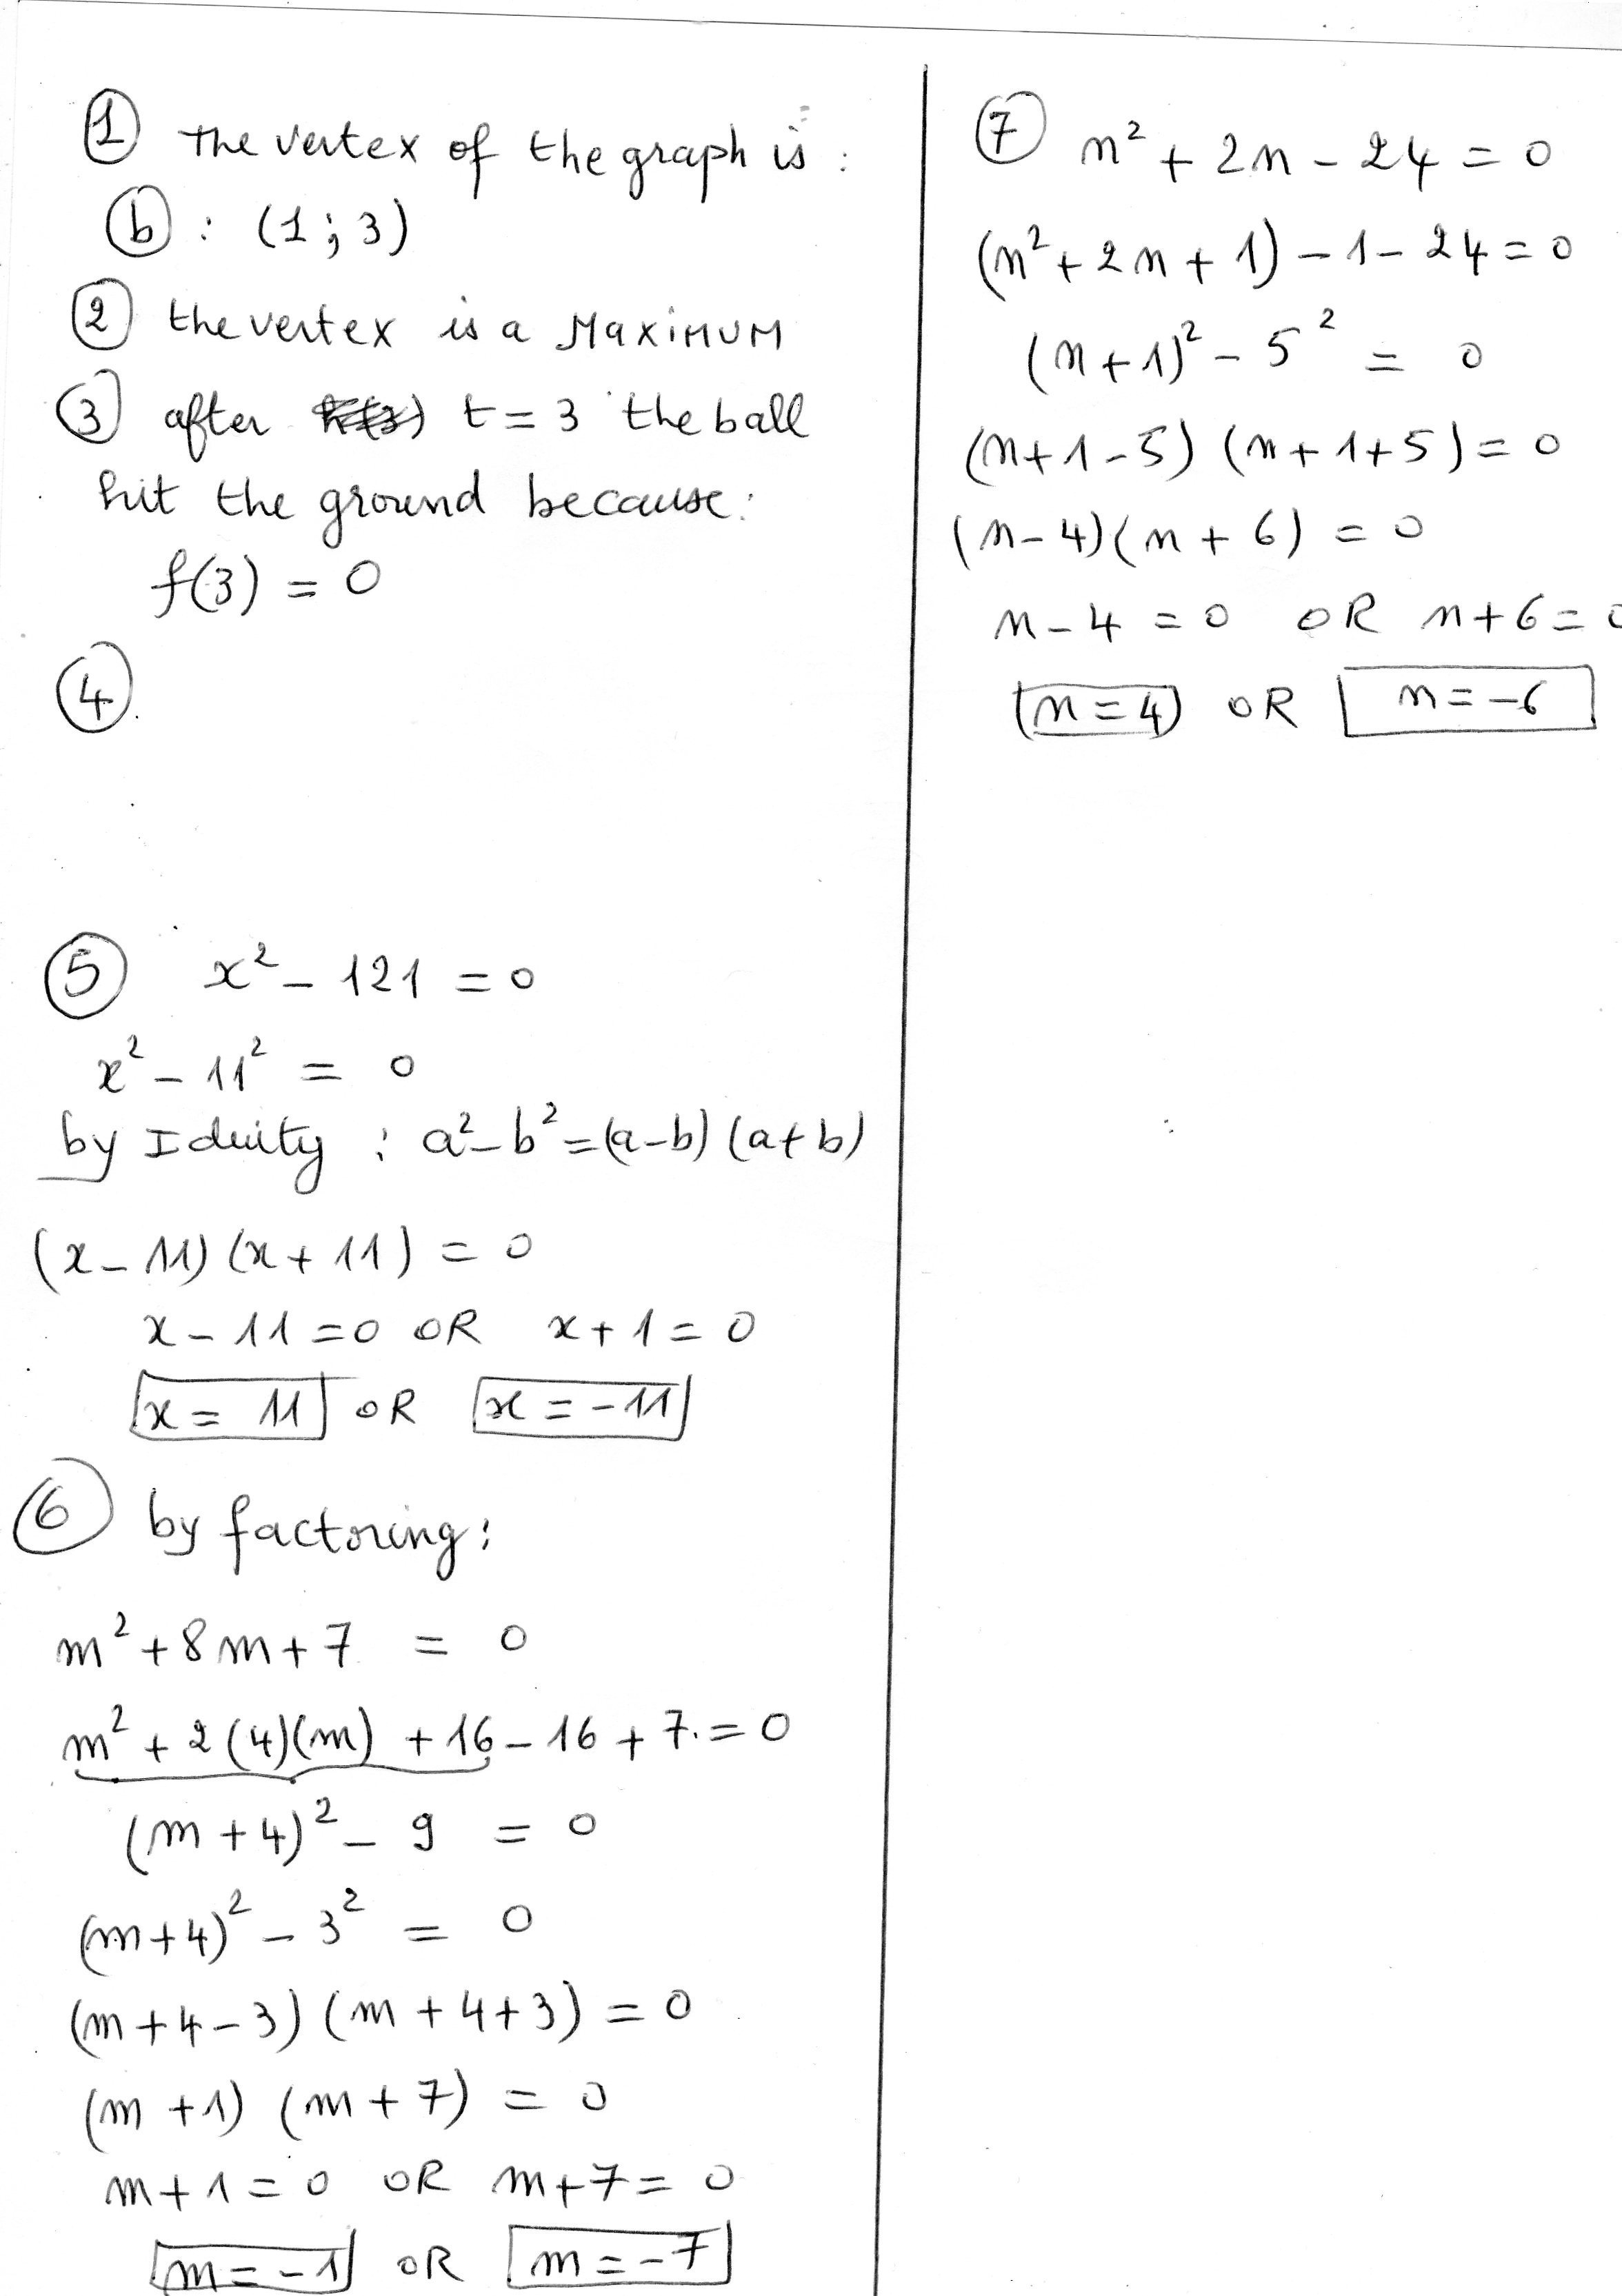 ① The vertex of the graph is :
ⓑ : (1 ; 3)
② the vertex is a MaxiMUM
③ after t = 3 the ball
hit the ground because :
f(3) = 0
④
⑤ x² - 121 = 0
x² - 11² = 0
by Iduity : a² - b² = (a-b) (a+b)
(x - 11) (x + 11) = 0
x - 11 = 0 OR x + 1 = 0
x = 11 OR x = -11
⑥ by factoring :
m² + 8m + 7 = 0
m² + 2(4)(m) + 16 - 16 + 7 = 0
(m + 4)² - 9 = 0
(m+4)² - 3² = 0
(m + 4 - 3) (m + 4 + 3) = 0
(m + 1) (m + 7) = 0
m + 1 = 0 OR m + 7 = 0
m = -1 OR m = -7
⑦ n² + 2n - 24 = 0
(n² + 2n + 1) - 1 - 24 = 0
(n + 1)² - 5² = 0
(n + 1 - 5) (n + 1 + 5) = 0
(n - 4)(n + 6) = 0
n - 4 = 0 OR n + 6 = 0
n = 4 OR n = -6